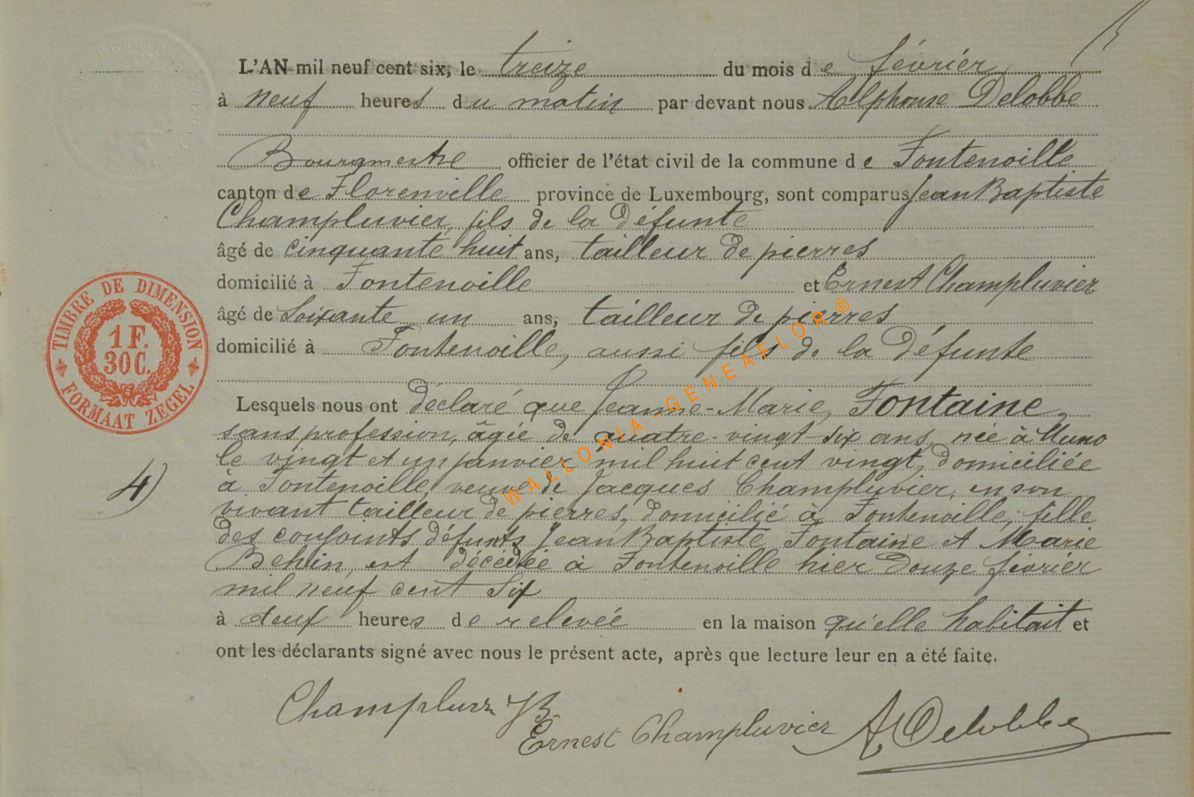 L'AN mil neuf cent six, le treize du mois de février
à neuf heures du matin par devant nous Alphonse Delobbe
Bourgmestre officier de l'état civil de la commune de Fontenoille
canton de Florenville province de Luxembourg, sont comparus Jean Baptiste
Champluvier, fils de la défunte
âgé de cinquante huit ans, tailleur de pierres
domicilié à Fontenoille et Ernest Champluvier
âgé de Soixante un ans, tailleur de pierres
domicilié à Fontenoille, aussi fils de la défunte
TIMBRE DE DIMENSION
1 F.
30 C.
FORMAAT ZEGEL
Lesquels nous ont déclaré que Jeanne-Marie, Fontaine,
sans profession, âgée de quatre-vingt-six ans, née à Muno
le vingt et un janvier mil huit cent vingt, domiciliée
4)
à Fontenoille, veuve de Jacques Champluvier, en son
vivant tailleur de pierres, domicilié à Fontenoille, fille
des conjoints défunts Jean Baptiste Fontaine et Marie
Behin, est décédée à Fontenoille hier douze février
mil neuf cent Six
à deux heures de relevée en la maison qu'elle habitait et
ont les déclarants signé avec nous le présent acte, après que lecture leur en a été faite.
Champluvr JB
Ernest Champluvier A Delobbe
WALLONIA-GENEAFLOR®